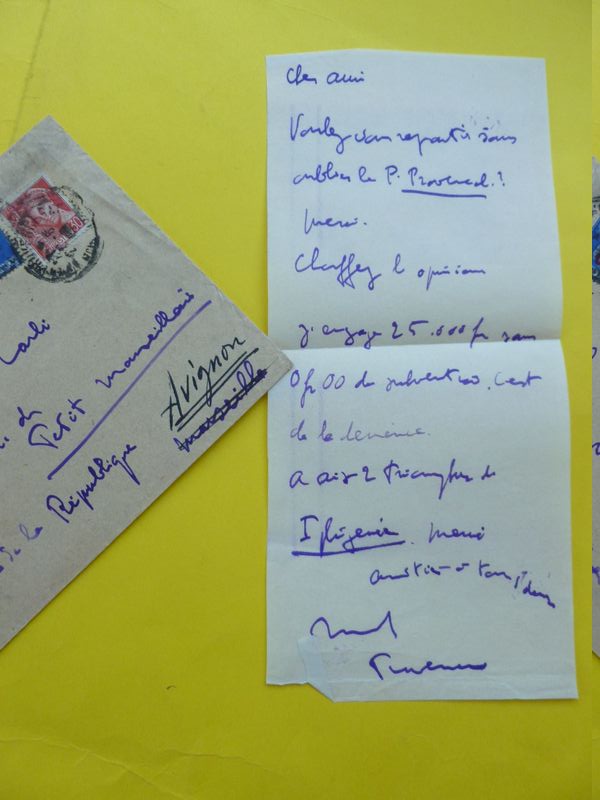 Cher ami
Voulez vous repartir sans
oublier le P. Provençal ?
merci.
Chauffez l'opinion
j'engage 25.000 fr sans
0 fr 00 de subvention. C'est
de la démence.
a Aix 2 triomphes de
Iphigénie. Merci
amitiés à tous 2
30
Petit Marseillais
Avignon
Marseille
de la République